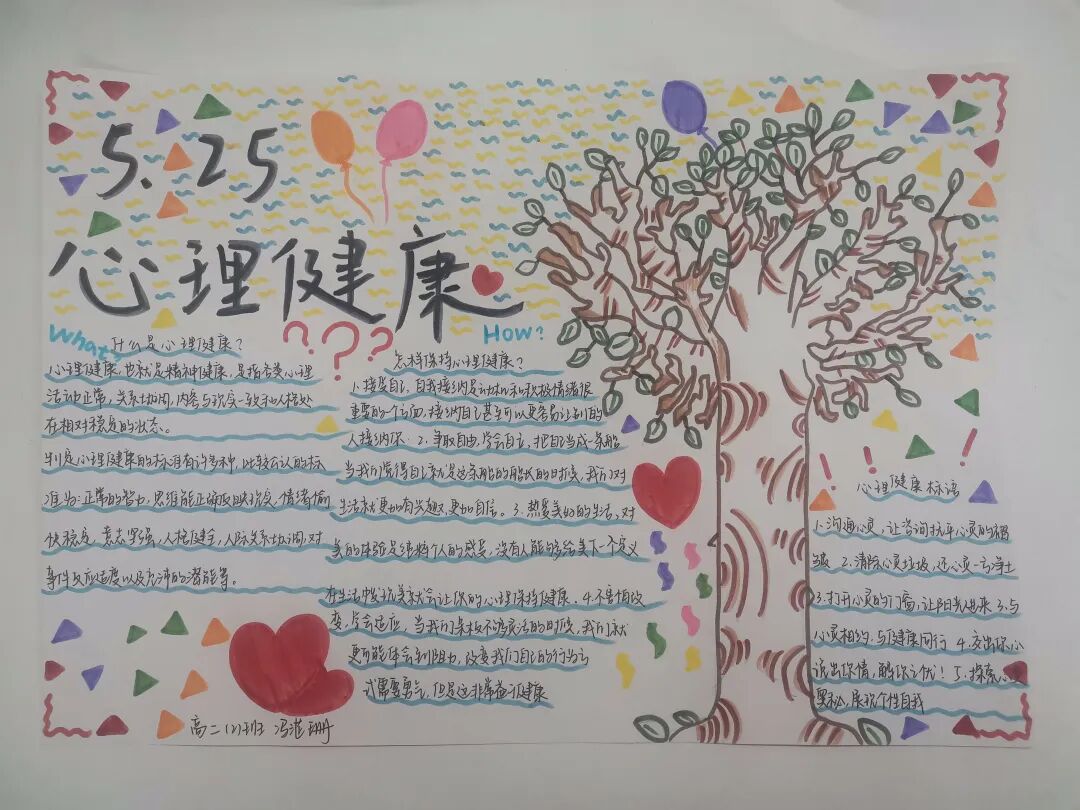 5.25
心理健康
What?
什么是心理健康？
心理健康,也就是精神健康,是指各类心理
活动正常,关系协调,内容与现实一致和人格处
在相对稳定的状态。
判定心理健康的标准有许多种,比较公认的标
准为:正常的智力,思维能正确反映现实,情绪愉
快稳定,意志坚强,人格健全,人际关系协调,对
事件反应适度以及充沛的潜能等。
???
How?
怎样保持心理健康?
1.接受自己,自我接纳是动机和积极情绪很
重要的一个方面,接纳自己甚至可以更容易让别的
人接纳你.2.争取自由,学会自主,把自己当成一条船
当我们觉得自己就是这条船的船长的时候,我们对
生活就更加有兴趣,更加自信。3.热爱美好的生活,对
美的体验是纯粹个人的感受,没有人能够给美下一个定义
在生活中发现美就会让你的心理保持健康.4.不害怕改
变,学会适应,当我们呆板不够灵活的时候,我们就
更可能体会到阻力,改变我们自己的行为方
式需要勇气,但是这非常益于健康
!!!
心理健康标语
1.沟通心灵,让咨询抚平心灵的褶
皱 2.清除心灵垃圾,还心灵一方净土
3.打开心灵的门窗,让阳光进来 3.与
心灵相约.与健康同行 4.交出你心
说出你情,解你之忧! 5.探索心灵
奥秘,展现个性自我
高二(2)班 冯滢珊